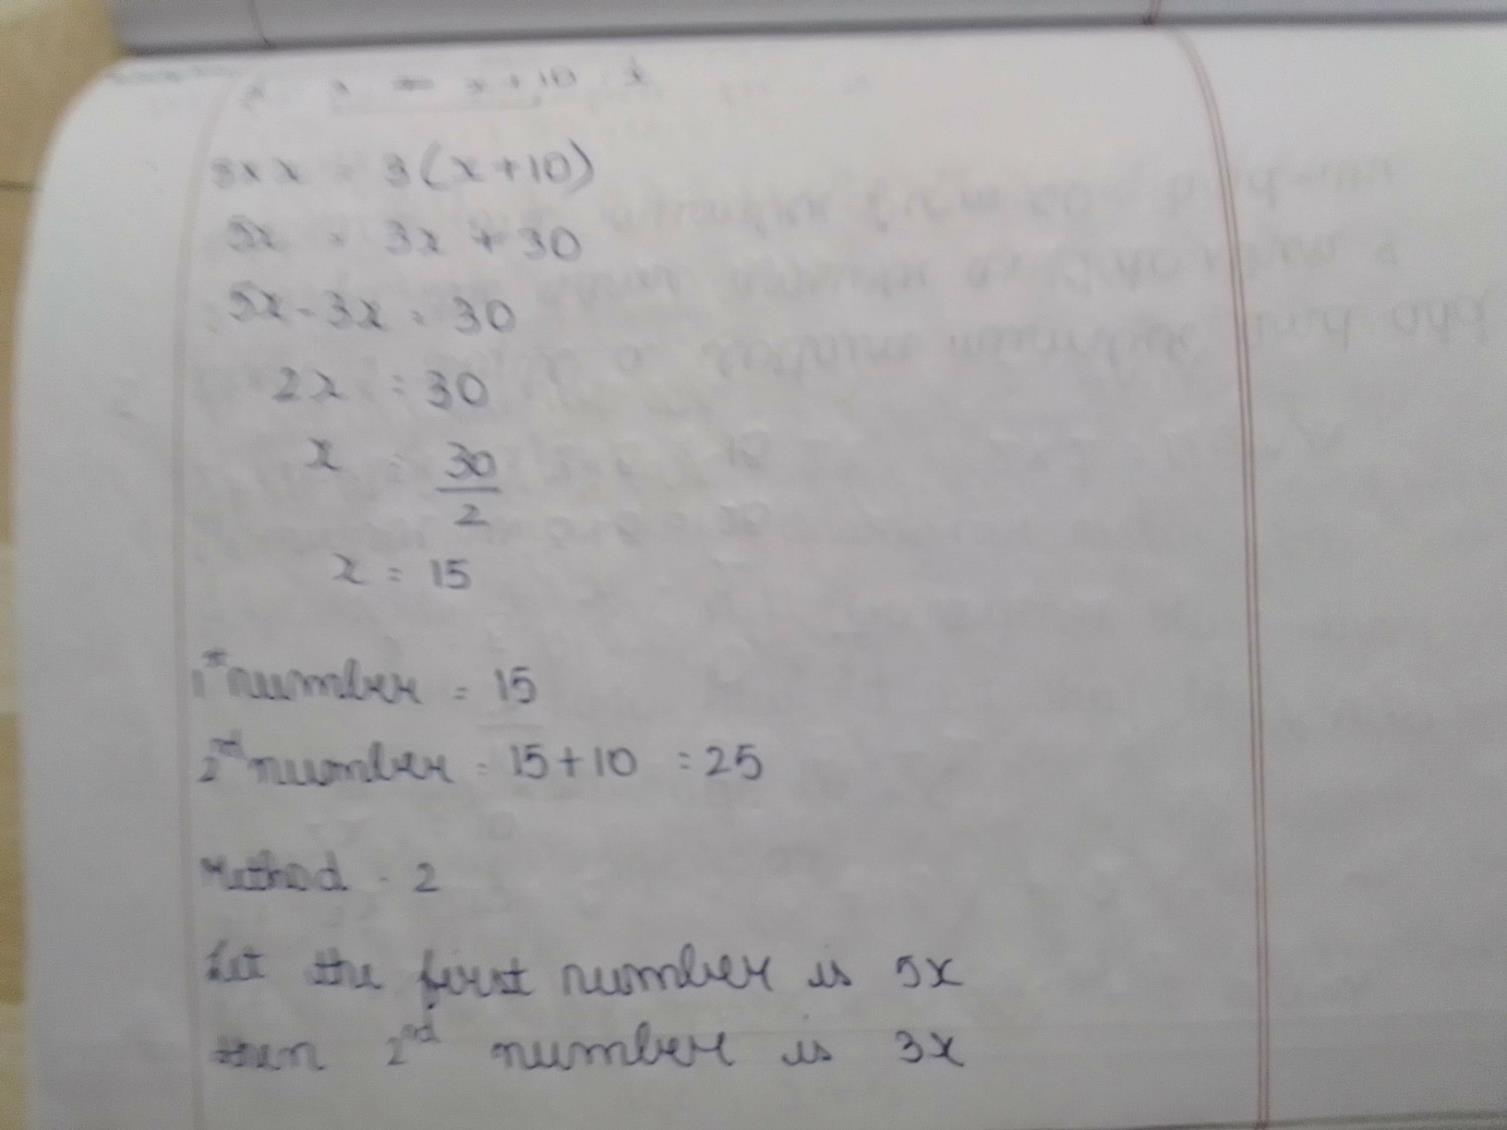 x + 10
5 x x = 3(x+10)
5x = 3x + 30
5x - 3x = 30
2x = 30
x = 30/2
x = 15
1st number = 15
2nd number = 15 + 10 = 25
Method - 2
Let the first number is 5x
then 2nd number is 3x